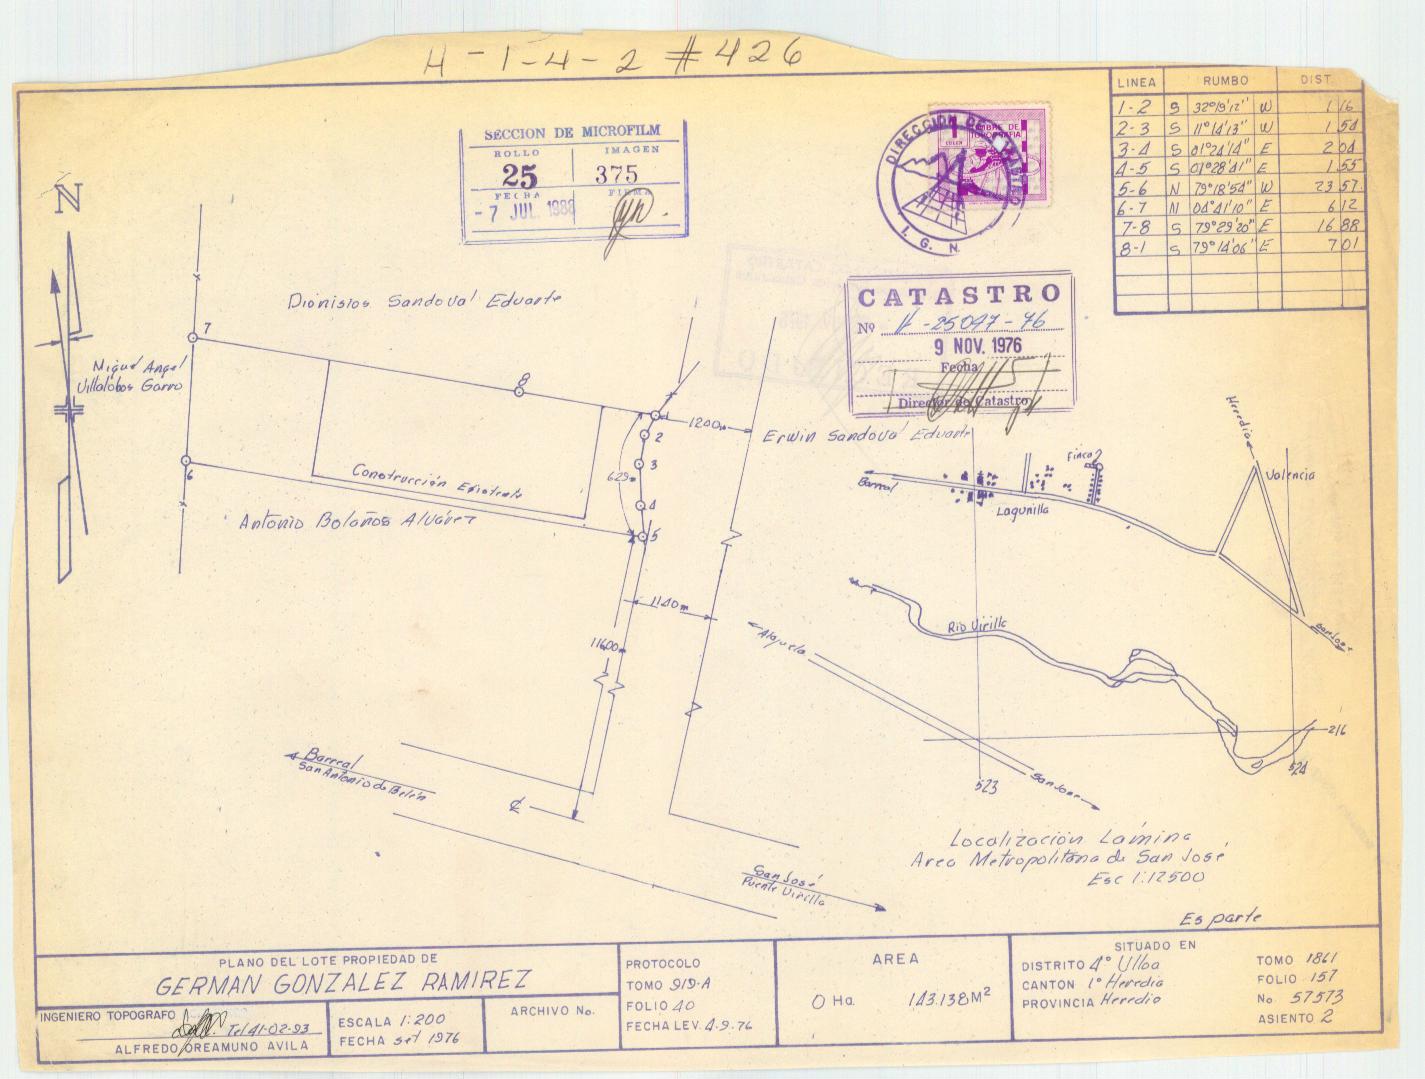 H-1-4-2 #426
SECCION DE MICROFILM
ROLLO IMAGEN
25 375
FECHA FIRMA
- 7 JUL. 1988
DIRECCION DE CATASTRO
I. G. N.
CATASTRO
Nº H-25097-76
9 NOV. 1976
Fecha
Director de Catastro
LINEA RUMBO DIST.
1-2 S 32°19'12" W 1 16
2-3 S 11°14'13" W 1 54
3-4 S 01°24'14" E 2 04
4-5 S 01°28'41" E 1 55
5-6 N 79°18'54" W 23 57
6-7 N 04°41'10" E 6 12
7-8 S 79°29'20" E 16 88
8-1 S 79°14'06" E 7 01
N
Dionisios Sandoval Eduarte
7
Miguel Angel
Villalobos Garro
8
1
1200m
Erwin Sandoval Eduarte
2
3
629m
6
Construcción Existente
4
Antonio Bolaños Alvárez
5
1140m
11600m
Barreal
San Antonio de Belén
₵
San José
Puente Virilla
Heredia
Finca
Valencia
Barreal
Lagunilla
Rio Virilla
San Jose
Alajuela
216
524
San Jose
523
Localización Lámina
Area Metropolitana de San José
Esc 1:12500
Es parte
PLANO DEL LOTE PROPIEDAD DE
GERMAN GONZALEZ RAMIREZ
INGENIERO TOPOGRAFO
Tel 41-02-93
ALFREDO OREAMUNO AVILA
ESCALA 1:200
FECHA set 1976
ARCHIVO No.
PROTOCOLO
TOMO 919-A
FOLIO 40
FECHA LEV. 4-9-76
AREA
0 Ha. 143.138M²
SITUADO EN
DISTRITO 4° Ulloa
CANTON 1° Heredia
PROVINCIA Heredia
TOMO 1861
FOLIO 157
No. 57573
ASIENTO 2